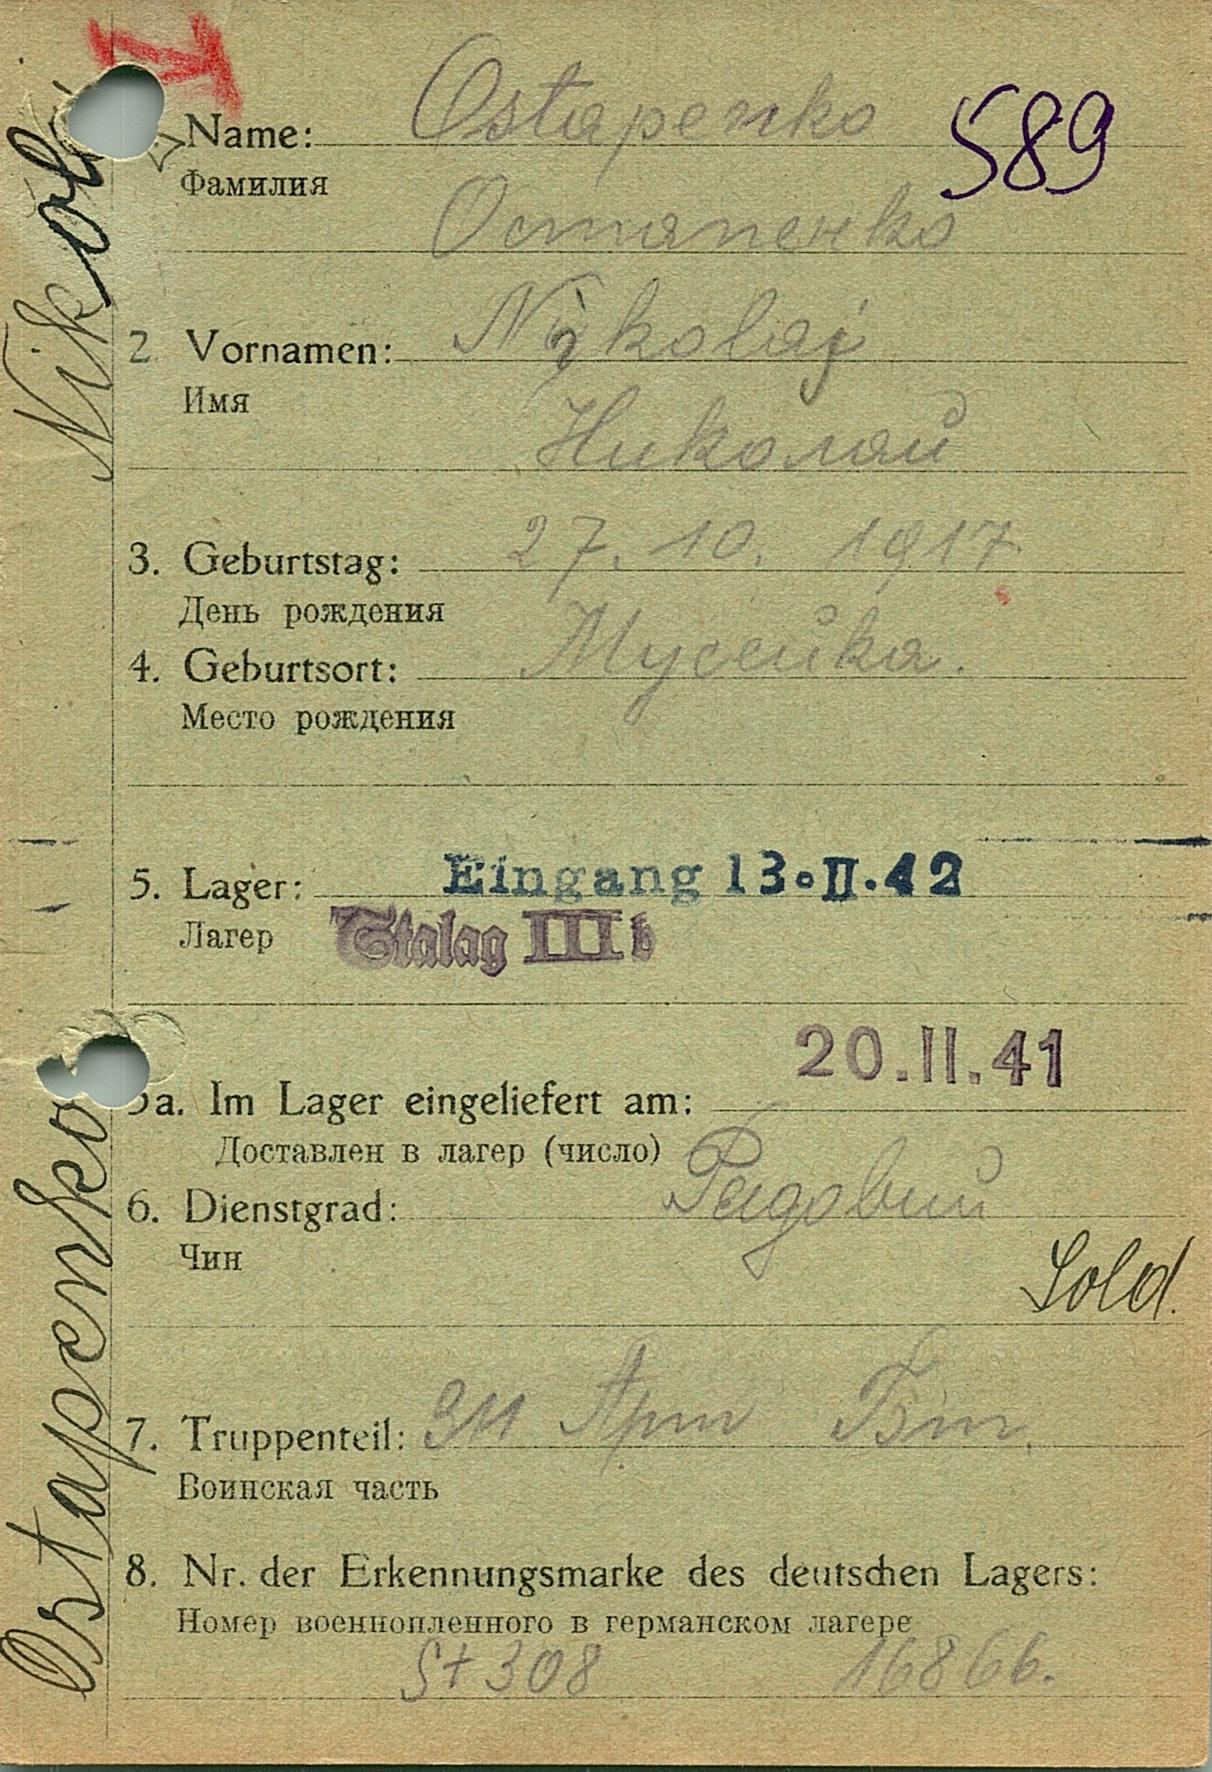 Name: Ostapenko 589
Фамилия
Остапенко
2. Vornamen: Nikolaj
Имя
Николай
3. Geburtstag: 27. 10. 1917
День рождения
4. Geburtsort: Мусейка.
Место рождения
5. Lager: Eingang 13.II.42
Лагер Stalag III b
20.II.41
5a. Im Lager eingeliefert am:
Доставлен в лагер (число)
6. Dienstgrad: Рядовий
Чин
Sold.
7. Truppenteil: 311 Арт Бт.
Воинская часть
8. Nr. der Erkennungsmarke des deutschen Lagers:
Номер военнопленного в германском лагере
St 308 16866.
Ostapenko Nikolai